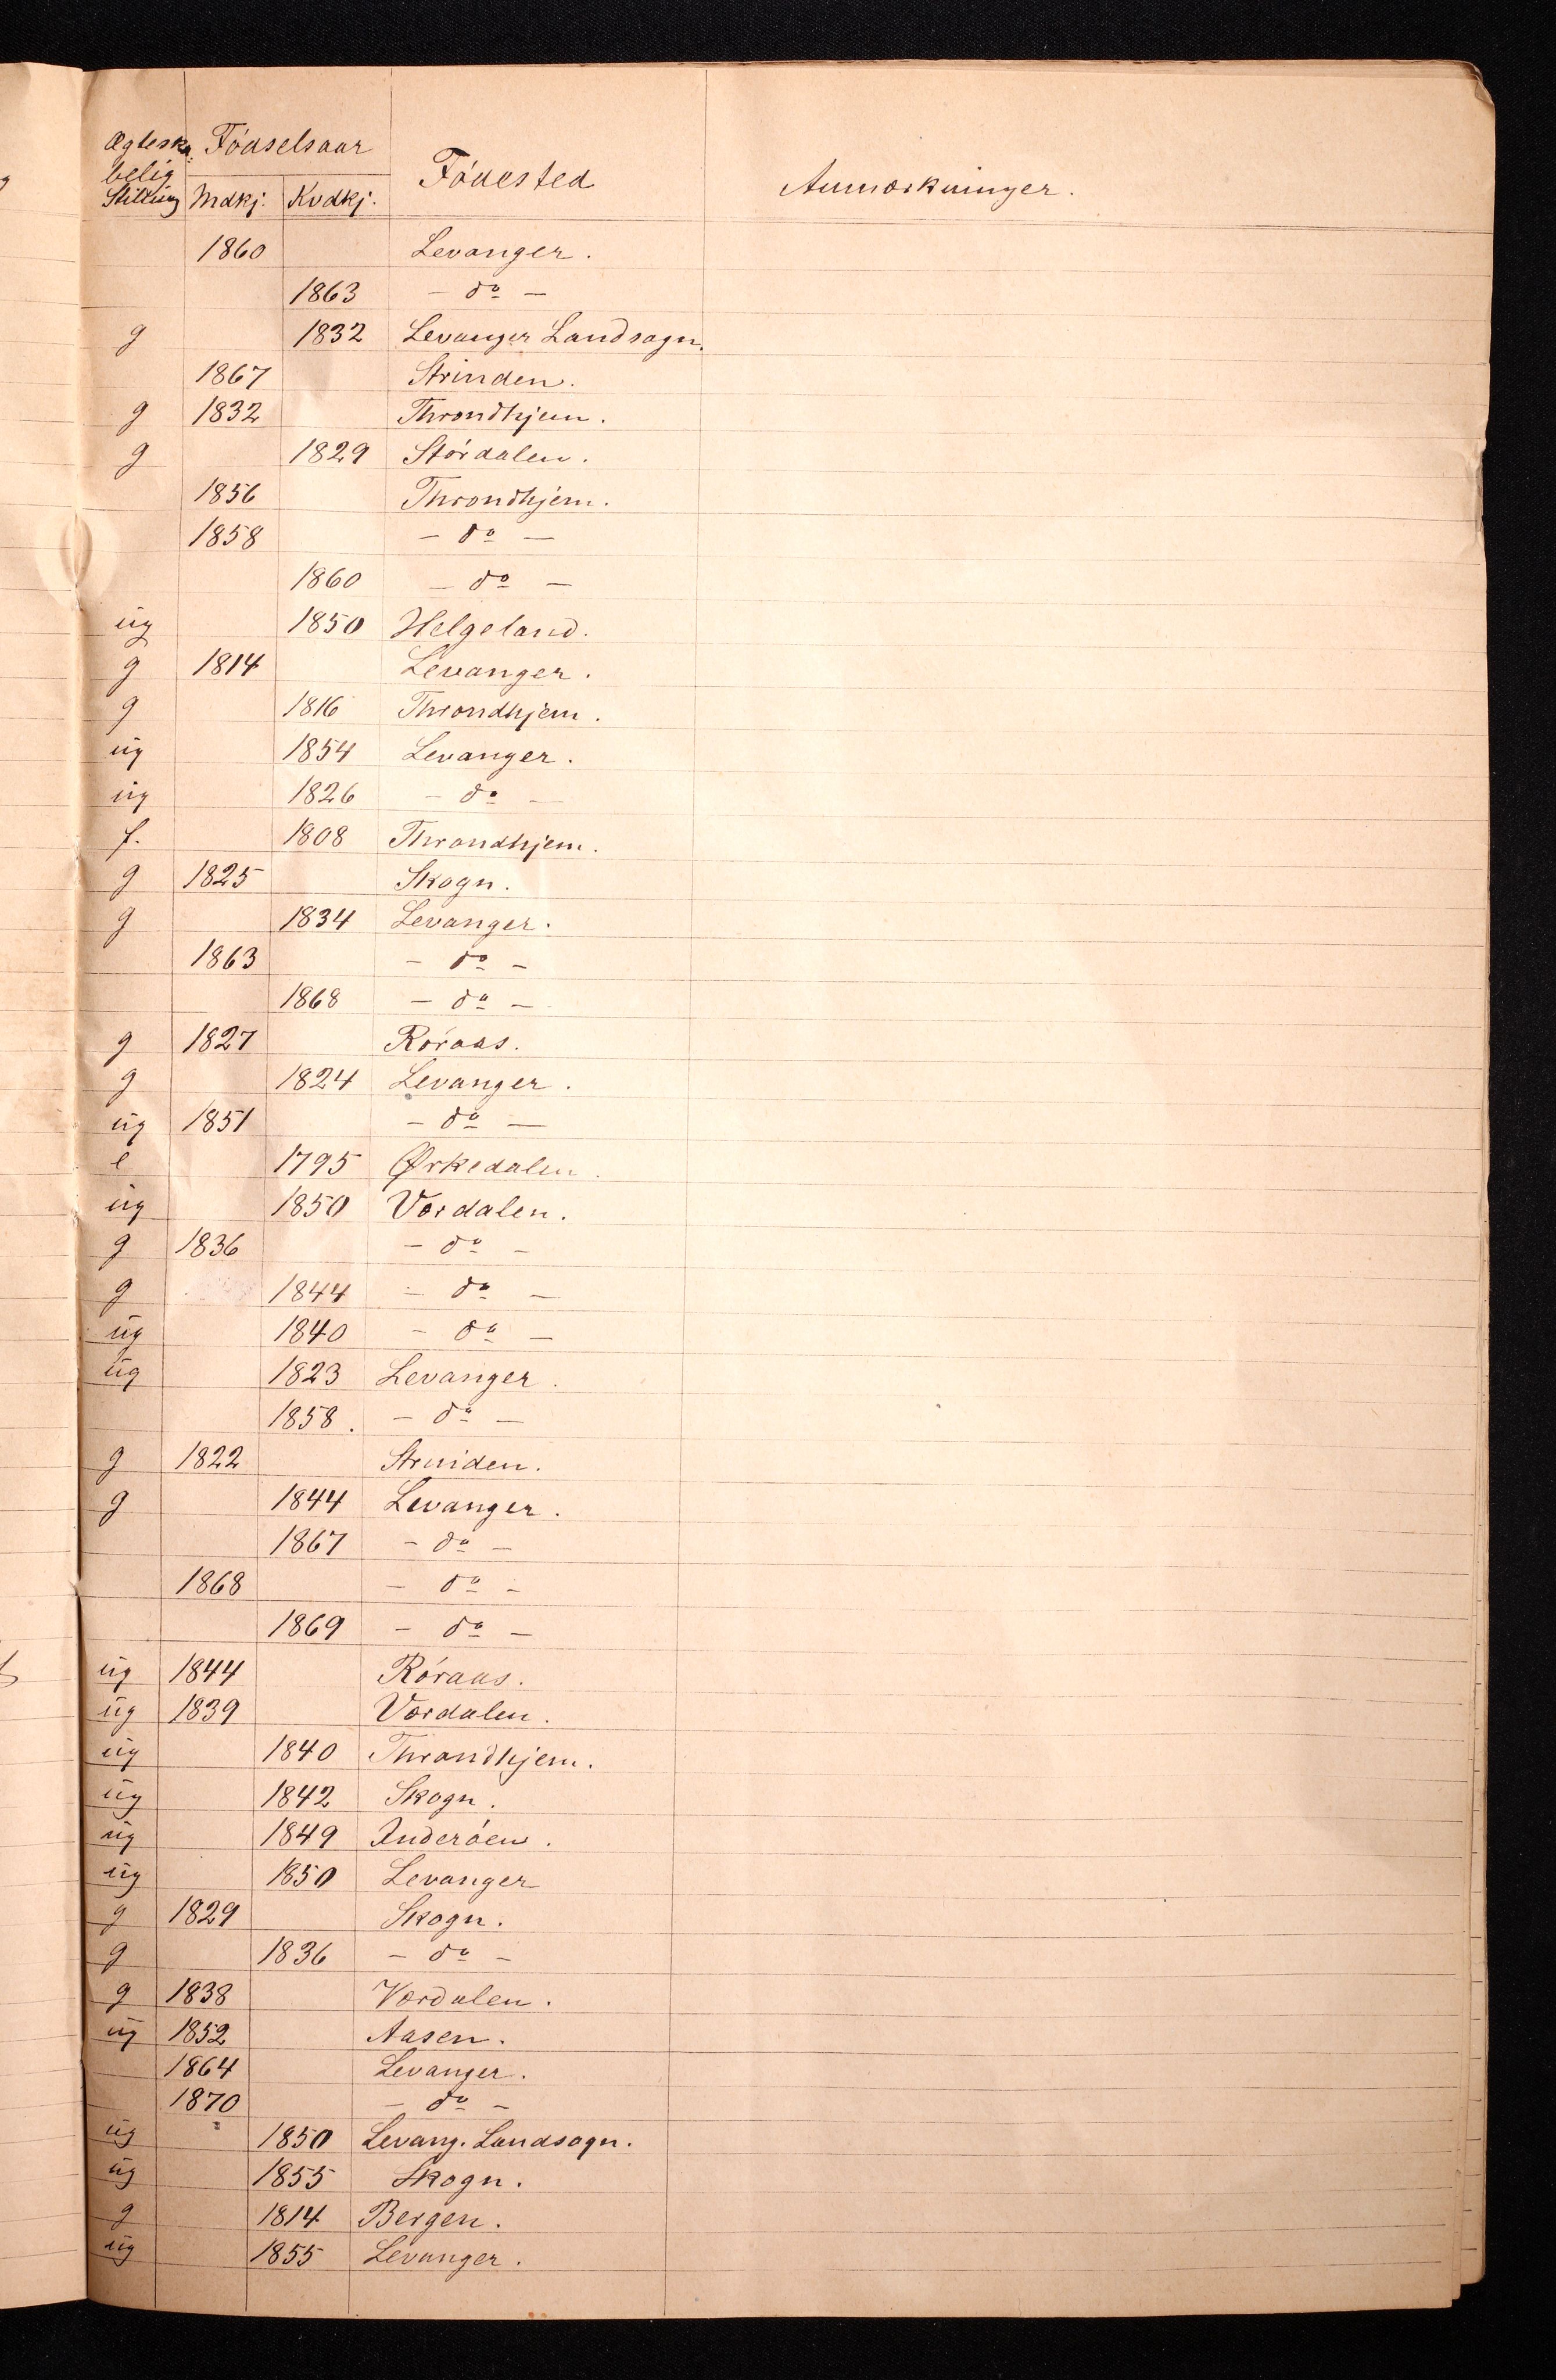 Ægteska: Fødselsaar
belig Fødested Anmærkninger.
Stilling Mdkj. Kvdkj.
1860 Levanger.
1863 - do -
g 1832 Levanger Landsogn.
1867 Strinden.
g 1832 Throndhjem.
g 1829 Størdalen.
1856 Throndhjem.
1858 - do -
1860 - do -
ug 1850 Helgeland.
g 1814 Levanger.
g 1816 Throndhjem.
ug 1854 Levanger.
ug 1826 - do -
f. 1808 Throndhjem.
g 1825 Skogn.
g 1834 Levanger.
1863 - do -
1868 - do -
g 1827 Røraas.
g 1824 Levanger.
ug 1851 - do -
e 1795 Ørkedalen.
ug 1850 Værdalen.
g 1836 - do -
g 1844 - do -
ug 1840 - do -
ug 1823 Levanger.
1858. - do -
g 1822 Strinden.
g 1844 Levanger.
1867 - do -
1868 - do -
1869 - do -
ug 1844 Røraas.
ug 1839 Værdalen.
ug 1840 Throndhjem.
ug 1842 Skogn.
ug 1849 Inderøen.
ug 1850 Levanger
g 1829 Skogn.
g 1836 - do -
g 1838 Værdalen.
ug 1852 Aasen.
1864 Levanger.
1870 - do -
ug 1850 Levang. Landsogn.
ug 1855 Skogn.
g 1814 Bergen.
ug 1855 Levanger.